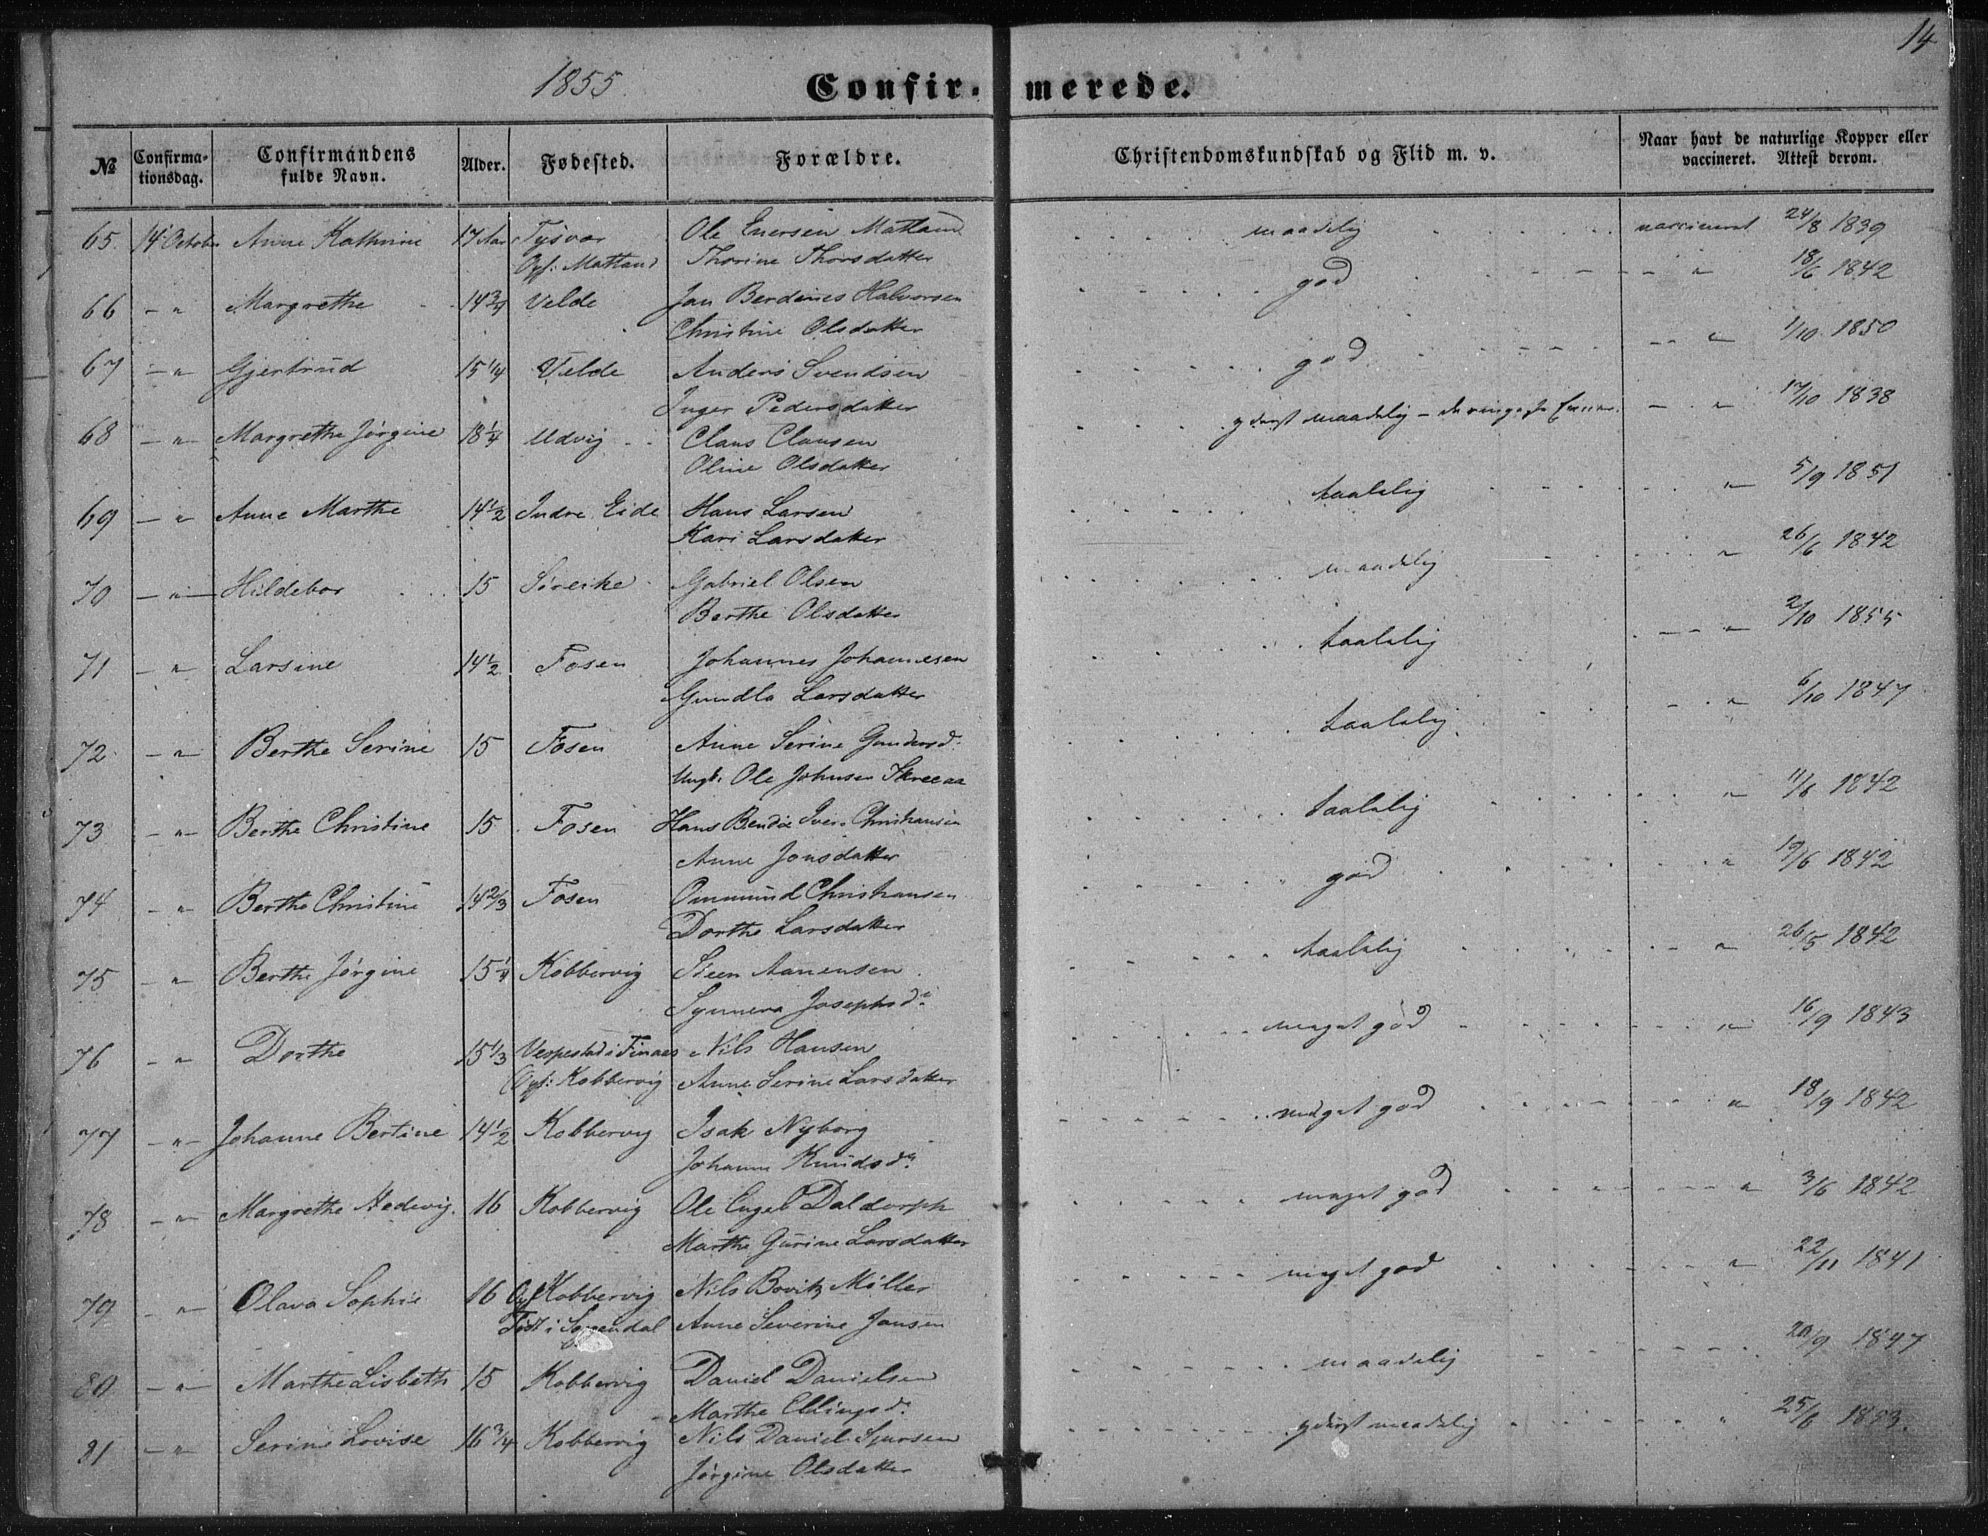 14
1855 Confir- merede.
№ Confirma-tionsdag. Confirmandens fulde Navn. Alder. Fødested. Forældre. Christendomskundskab og Flid m. v. Naar havt de naturlige Kopper eller vaccineret. Attest derom.
65. 14 October Anne Kathrine 17 Aar Tysvær Ole Enersen Matland maadelig vaccineret 24/8 1839
Opf: Matland Thorine Thorsdatter
66 - " Margrethe 14 3/4 Velde Jan Berdines Halvorsen god " 18/6 1842
Christine Olsdatter
67 - " Gjertrud 15 1/4 Velde Anders Svendsen god " 1/10 1850
Inger Pedersdatter
68 - " Margrethe Jørgine 18 1/4 Udvig Claus Clausen yderst maadelig - " 17/10 1838
Oline Olsdatter
69 - " Anne Marthe 14 1/2 Indre Eide Hans Larsen taalelig " 5/9 1851
Kari Larsdatter
70 - " Hildebor 15 Søreike Gabriel Olsen maadelig " 26/6 1842
Berthe Olsdatter
71 - " Larsine 14 1/2 Fosen Johannes Johannesen taalelig " 2/10 1855
Gundla Larsdatter
72 - " Berthe Serine 15 Fosen Anne Serine Gundersd: taalelig " 6/10 1847
Ungk: Ole Johnsen Skreeaa
73 - " Berthe Christine 15 Fosen Hans Bendix Ivers Christiansen taalelig " 11/6 1842
Anne Jonsdatter
74 - " Berthe Christine 14 2/3 Fosen Ommund Christiansen god " 19/6 1842
Dorthe Larsdatter
75 - " Berthe Jørgine 15 1/4 Kobbervig Steen Aanensen taalelig " 26/5 1842
Synnera Josephsd:
76 - " Dorthe 15 1/3 Vespestad i Finaas Nils Hansen meget god " 16/9 1843
Opf: Kobbervig Anne Serine Larsdatter
77 - " Johanne Bertine 14 1/2 Kobbervig Isak Nyborg meget god " 18/9 1842
Johanne Knudsd:
78 - " Margrethe Hedevig 16 Kobbervig Ole Engel Daldorph meget god " 3/6 1842
Marthe Gurine Larsdatter
79 - " Olava Sophie 16 Opf Kobbervig Nils Bovitz Møller meget god " 22/11 1841
Født i Sogendal Anne Severine Jansen
80 - " Marthe Lisbeth 15 Kobbervig Daniel Danielsen maadelig 20/9 1847
Marthe Ellingsd:
81 - " Serine Lovise 16 3/4 Kobbervig Nils Daniel Sjursen yderst maadelig " 25/6 1853.
Jørgine Olsdatter